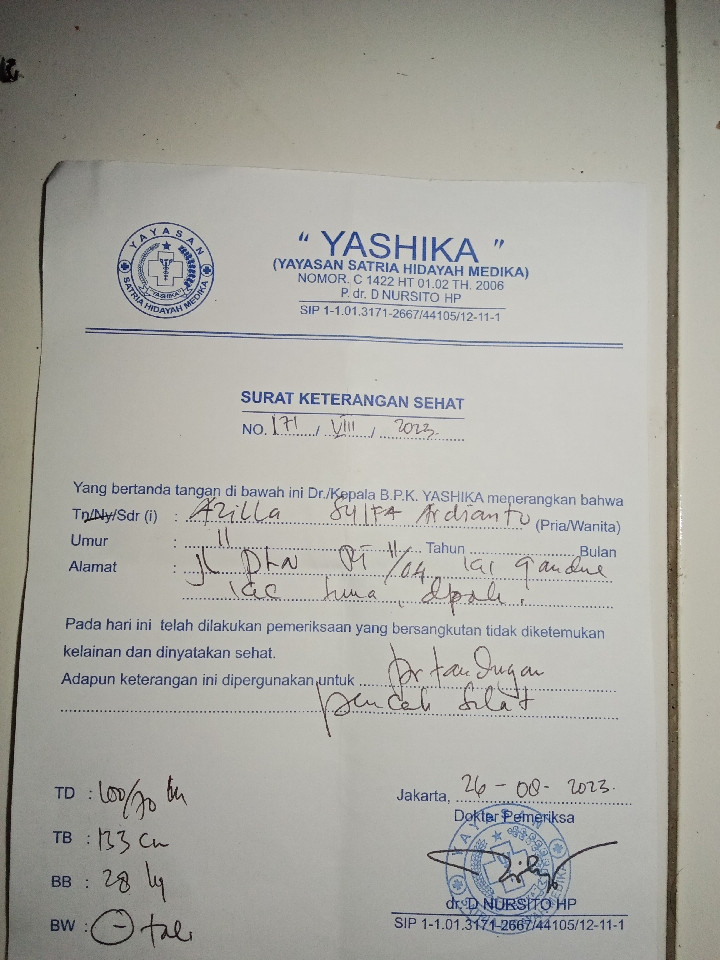 YAYASAN
SATRIA HIDAYAH MEDIKA
"YASHIKA"
" YASHIKA "
(YAYASAN SATRIA HIDAYAH MEDIKA)
NOMOR. C 1422 HT 01.02 TH. 2006
P. dr. D NURSITO HP
SIP 1-1.01.3171-2667/44105/12-11-1
SURAT KETERANGAN SEHAT
NO. 171 / VIII / 2023
Yang bertanda tangan di bawah ini Dr./Kepala B.P.K. YASHIKA menerangkan bahwa
Tn/Ny/Sdr (i) : Azilla Syifa Ardianto (Pria/Wanita)
Umur : 11 Tahun Bulan
Alamat : Jl RT 11/04
Pada hari ini telah dilakukan pemeriksaan yang bersangkutan tidak diketemukan
kelainan dan dinyatakan sehat.
Adapun keterangan ini dipergunakan untuk
pencak silat
TD : 100/70
TB : 133 cm
BB : 28 kg
BW :
Jakarta, 26-08-2023
Dokter Pemeriksa
dr. D NURSITO HP
SIP 1-1.01.3171-2667/44105/12-11-1